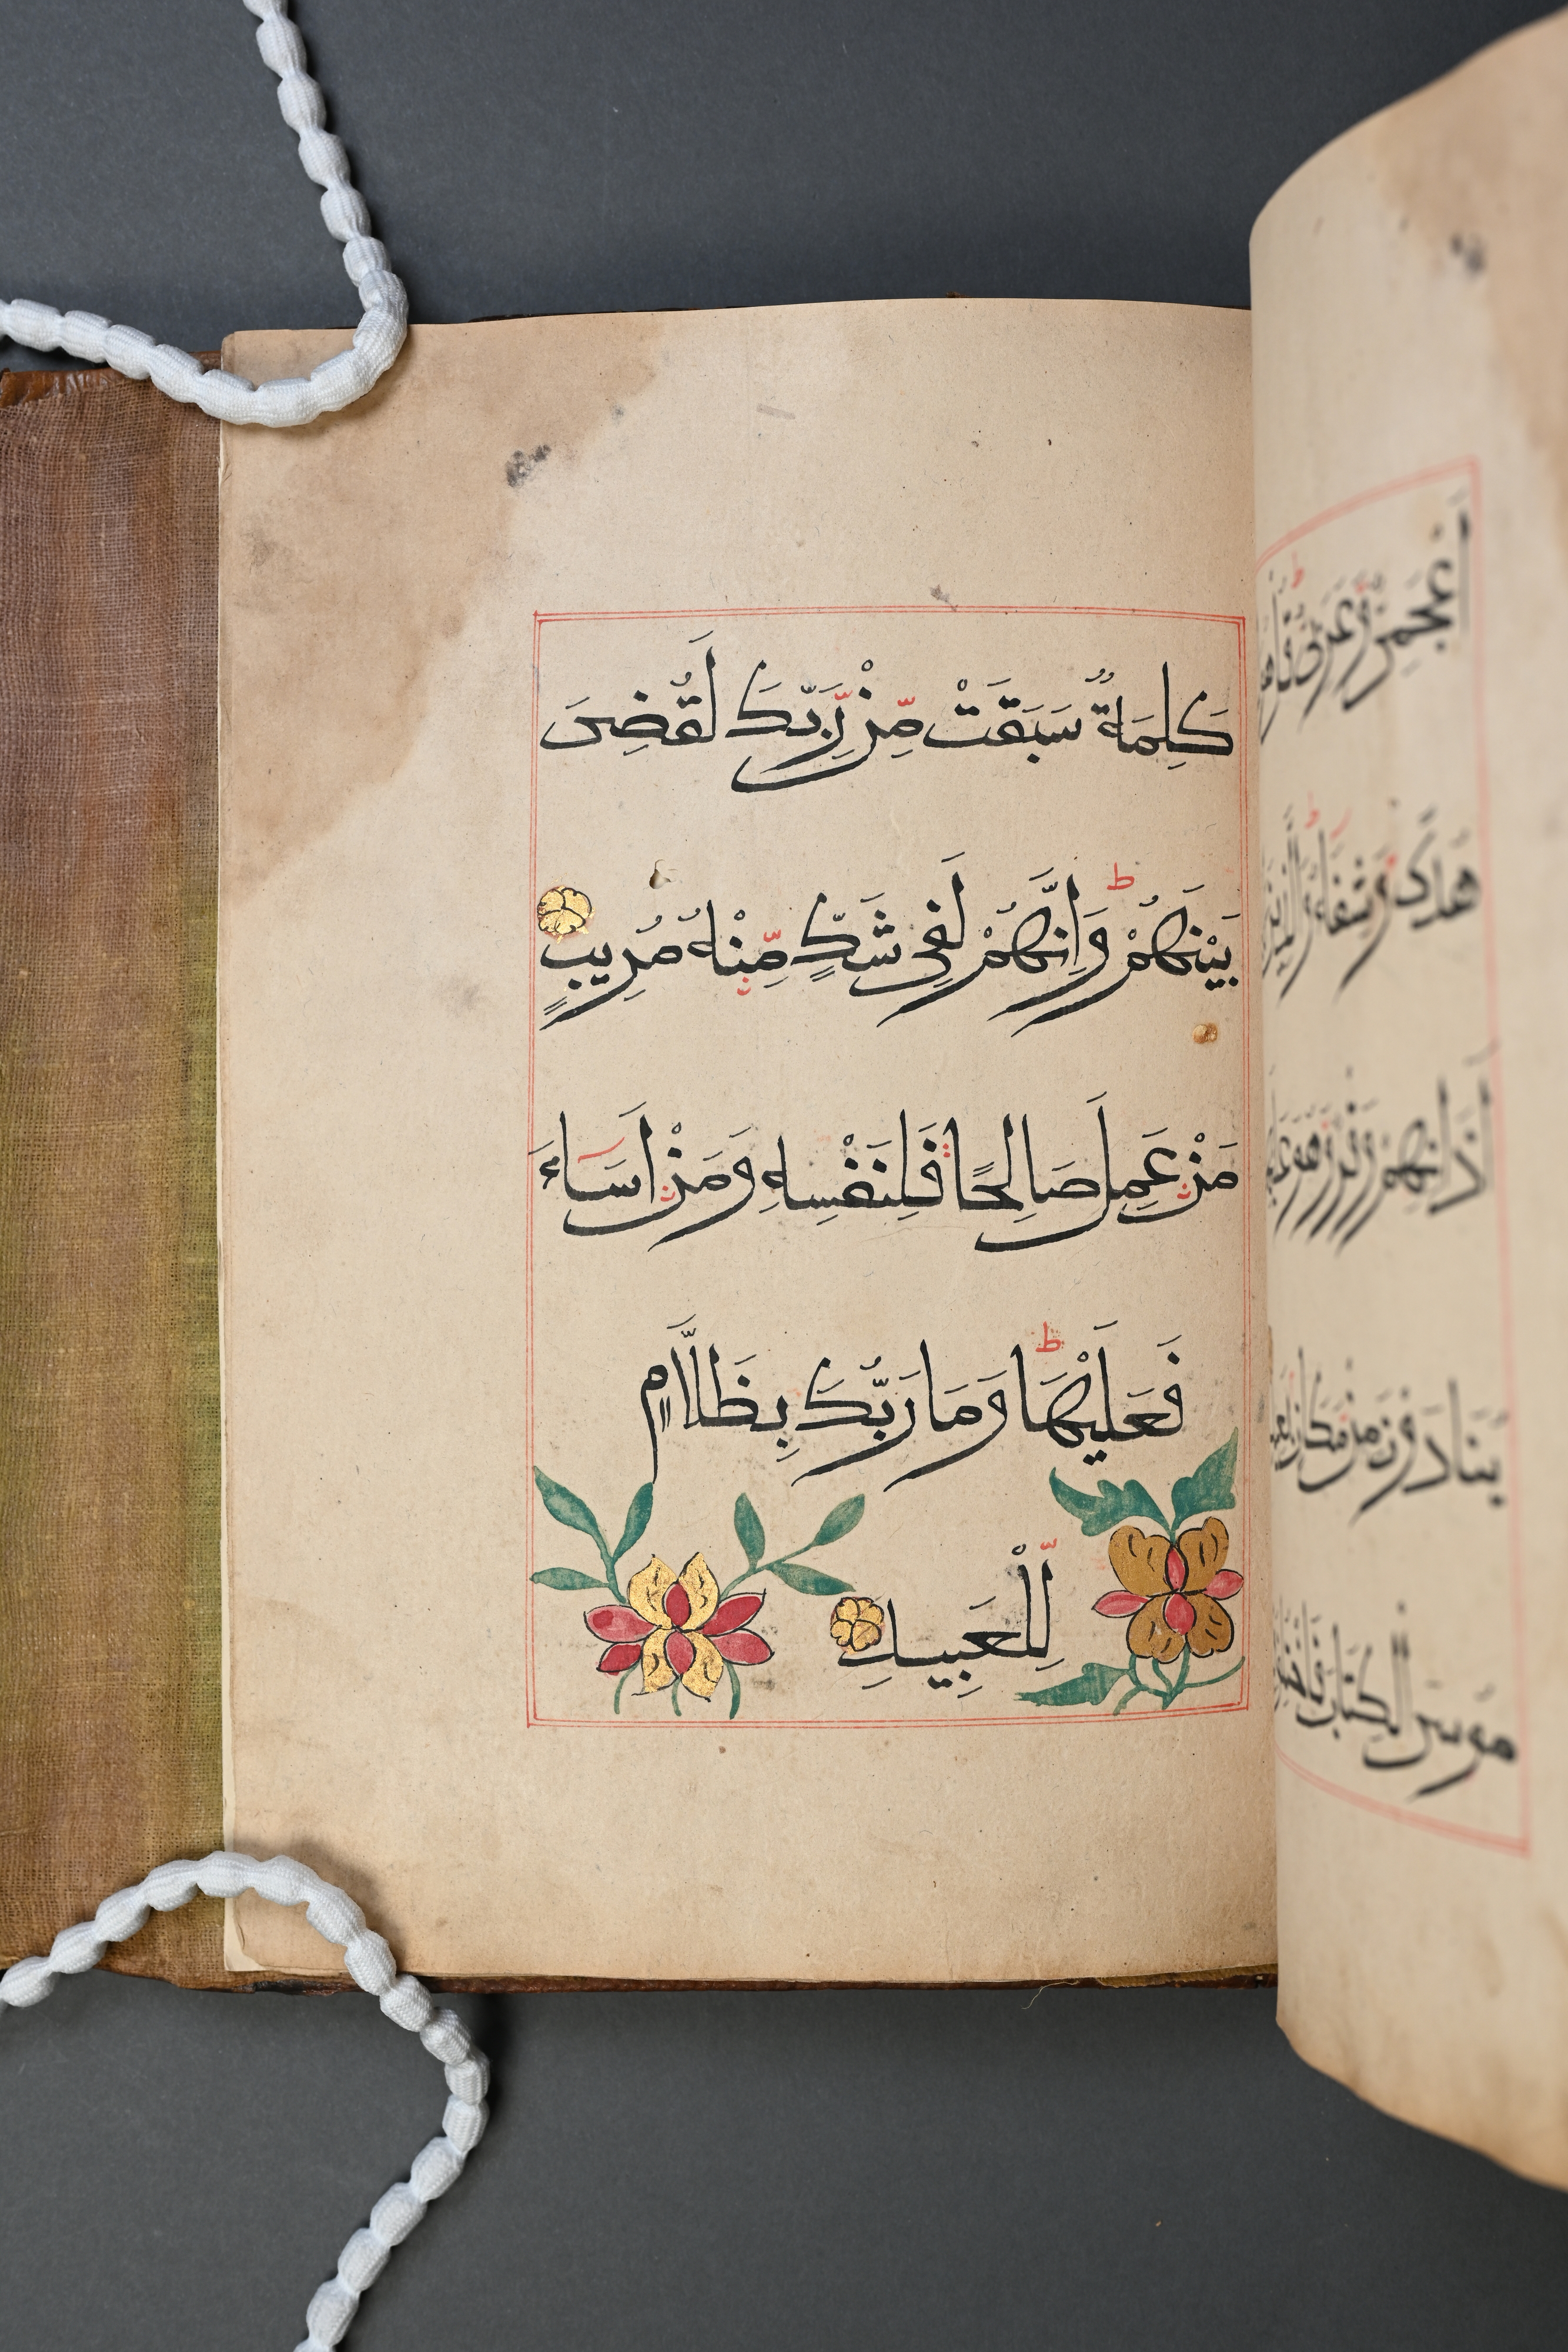 أَعْجَمِيٌّ وَعَرَبِيٌّ
هُدًى وَشِفَاءٌ وَالَّذِينَ
آذَانِهِمْ وَقْرٌ وَهُوَ
يُنَادَوْنَ مِنْ مَكَانٍ
مُوسَى الْكِتَابَ
كَلِمَةٌ سَبَقَتْ مِّنْ رَّبِّكَ لَقُضِىَ
بَيْنَهُمْ ط وَاِنَّهُمْ لَفِى شَكٍّ مِّنْهُ مُرِيبٍ
مَنْ عَمِلَ صَالِحًا فَلِنَفْسِهِ وَمَنْ اَسَاءَ
فَعَلَيْهَا ط وَمَا رَبُّكَ بِظَلَّامٍ
لِّلْعَبِيدِ